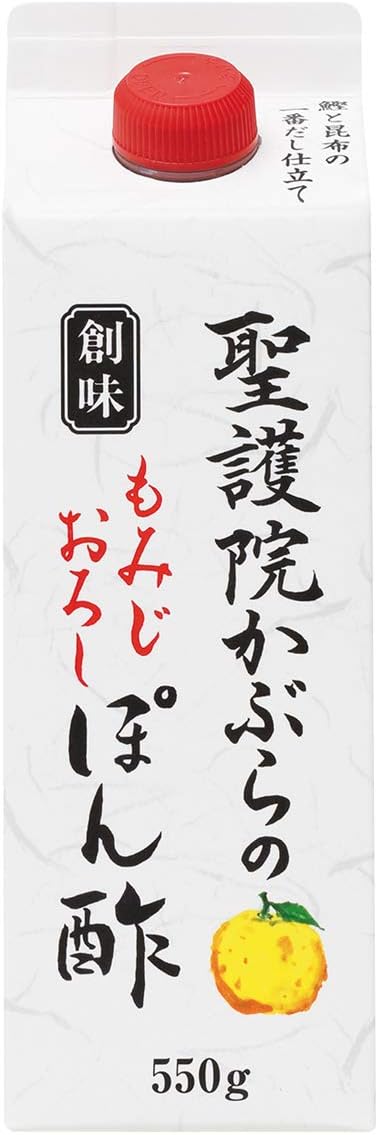 鰹と昆布の
一番だし仕立て
聖護院かぶらの
創味
もみじ
おろし
ぽん酢
550g